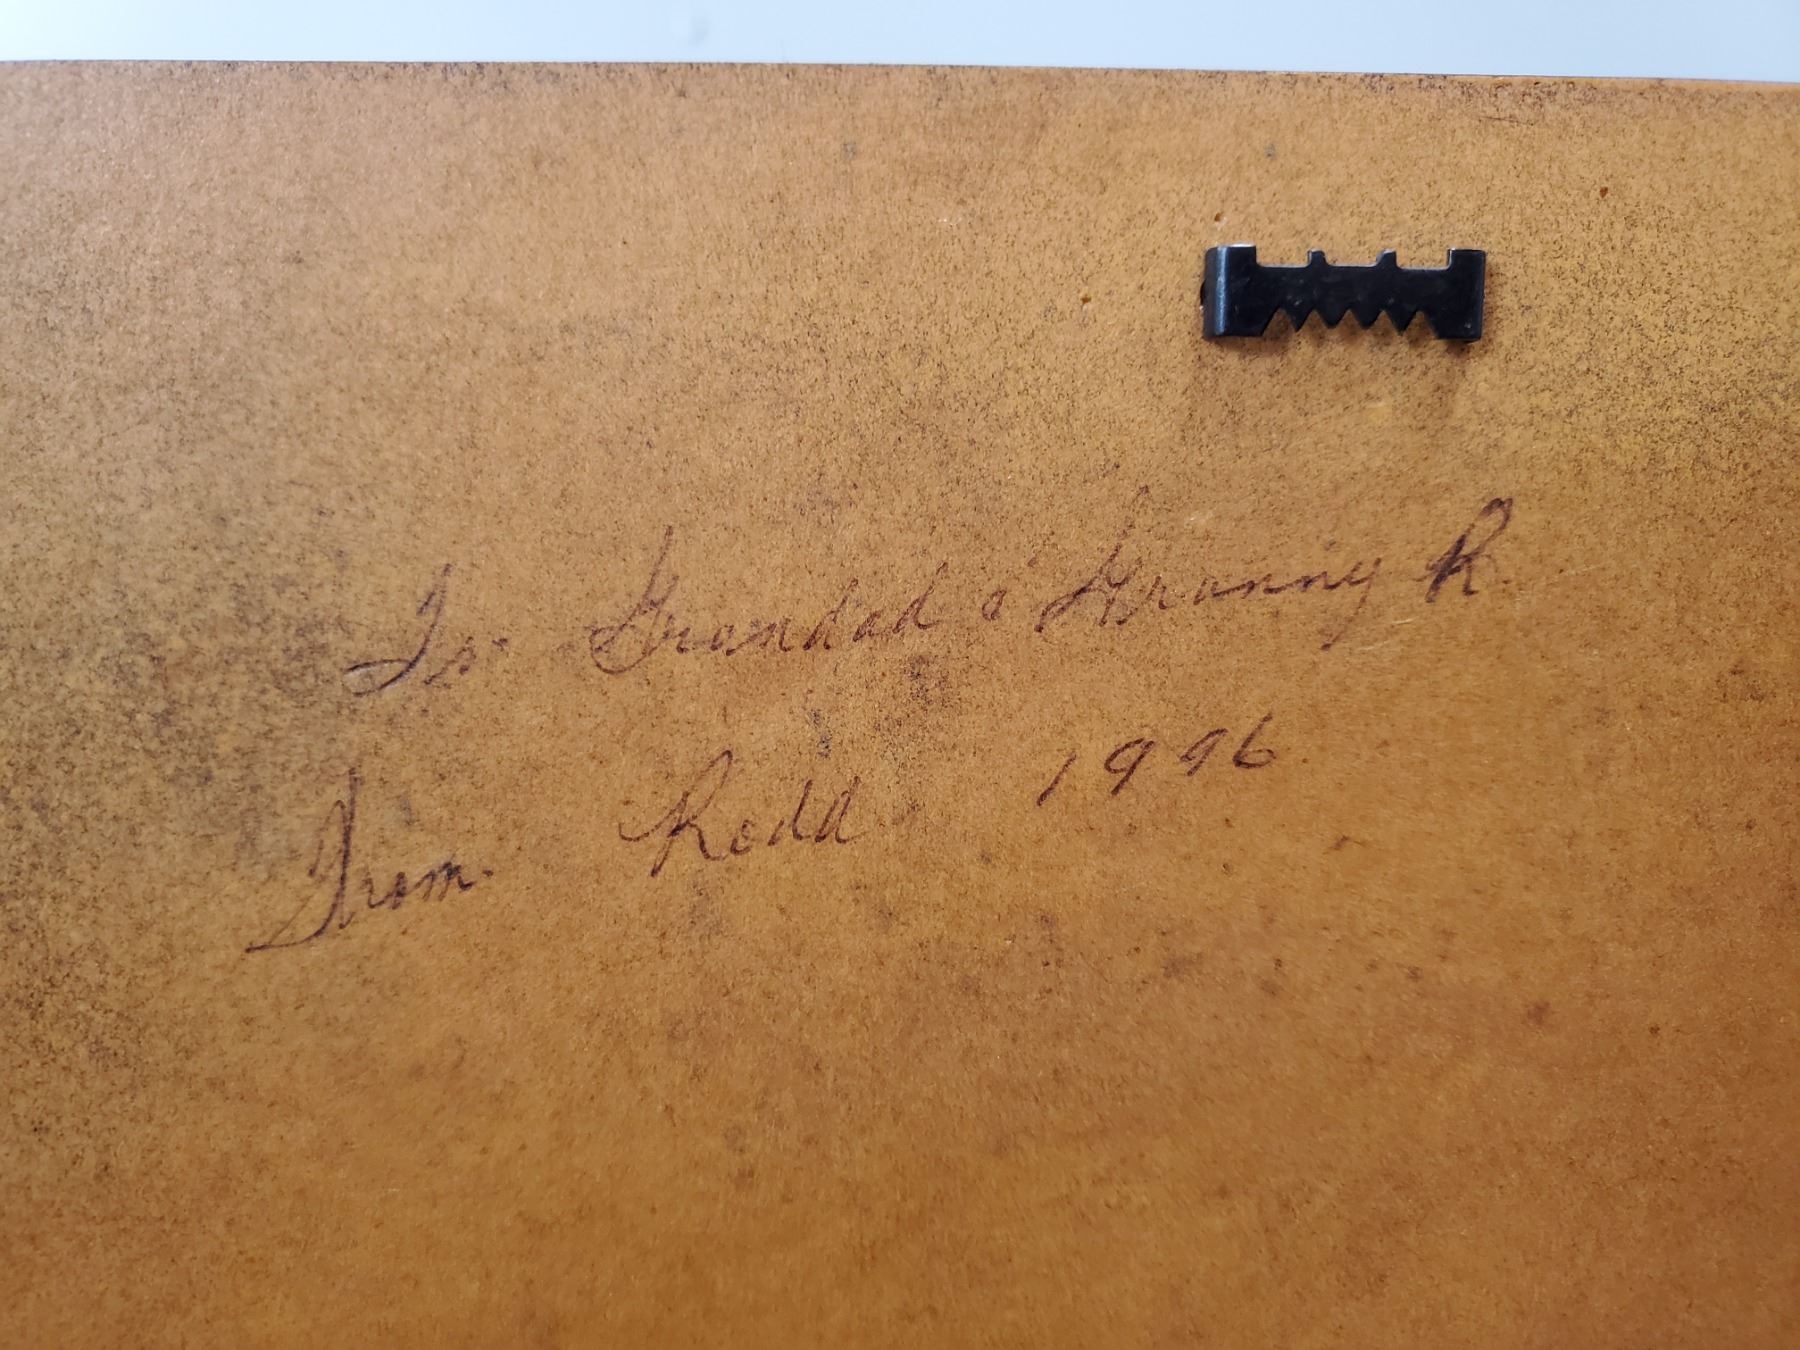 To: Grandad & Granny R.
From. Redd 1996